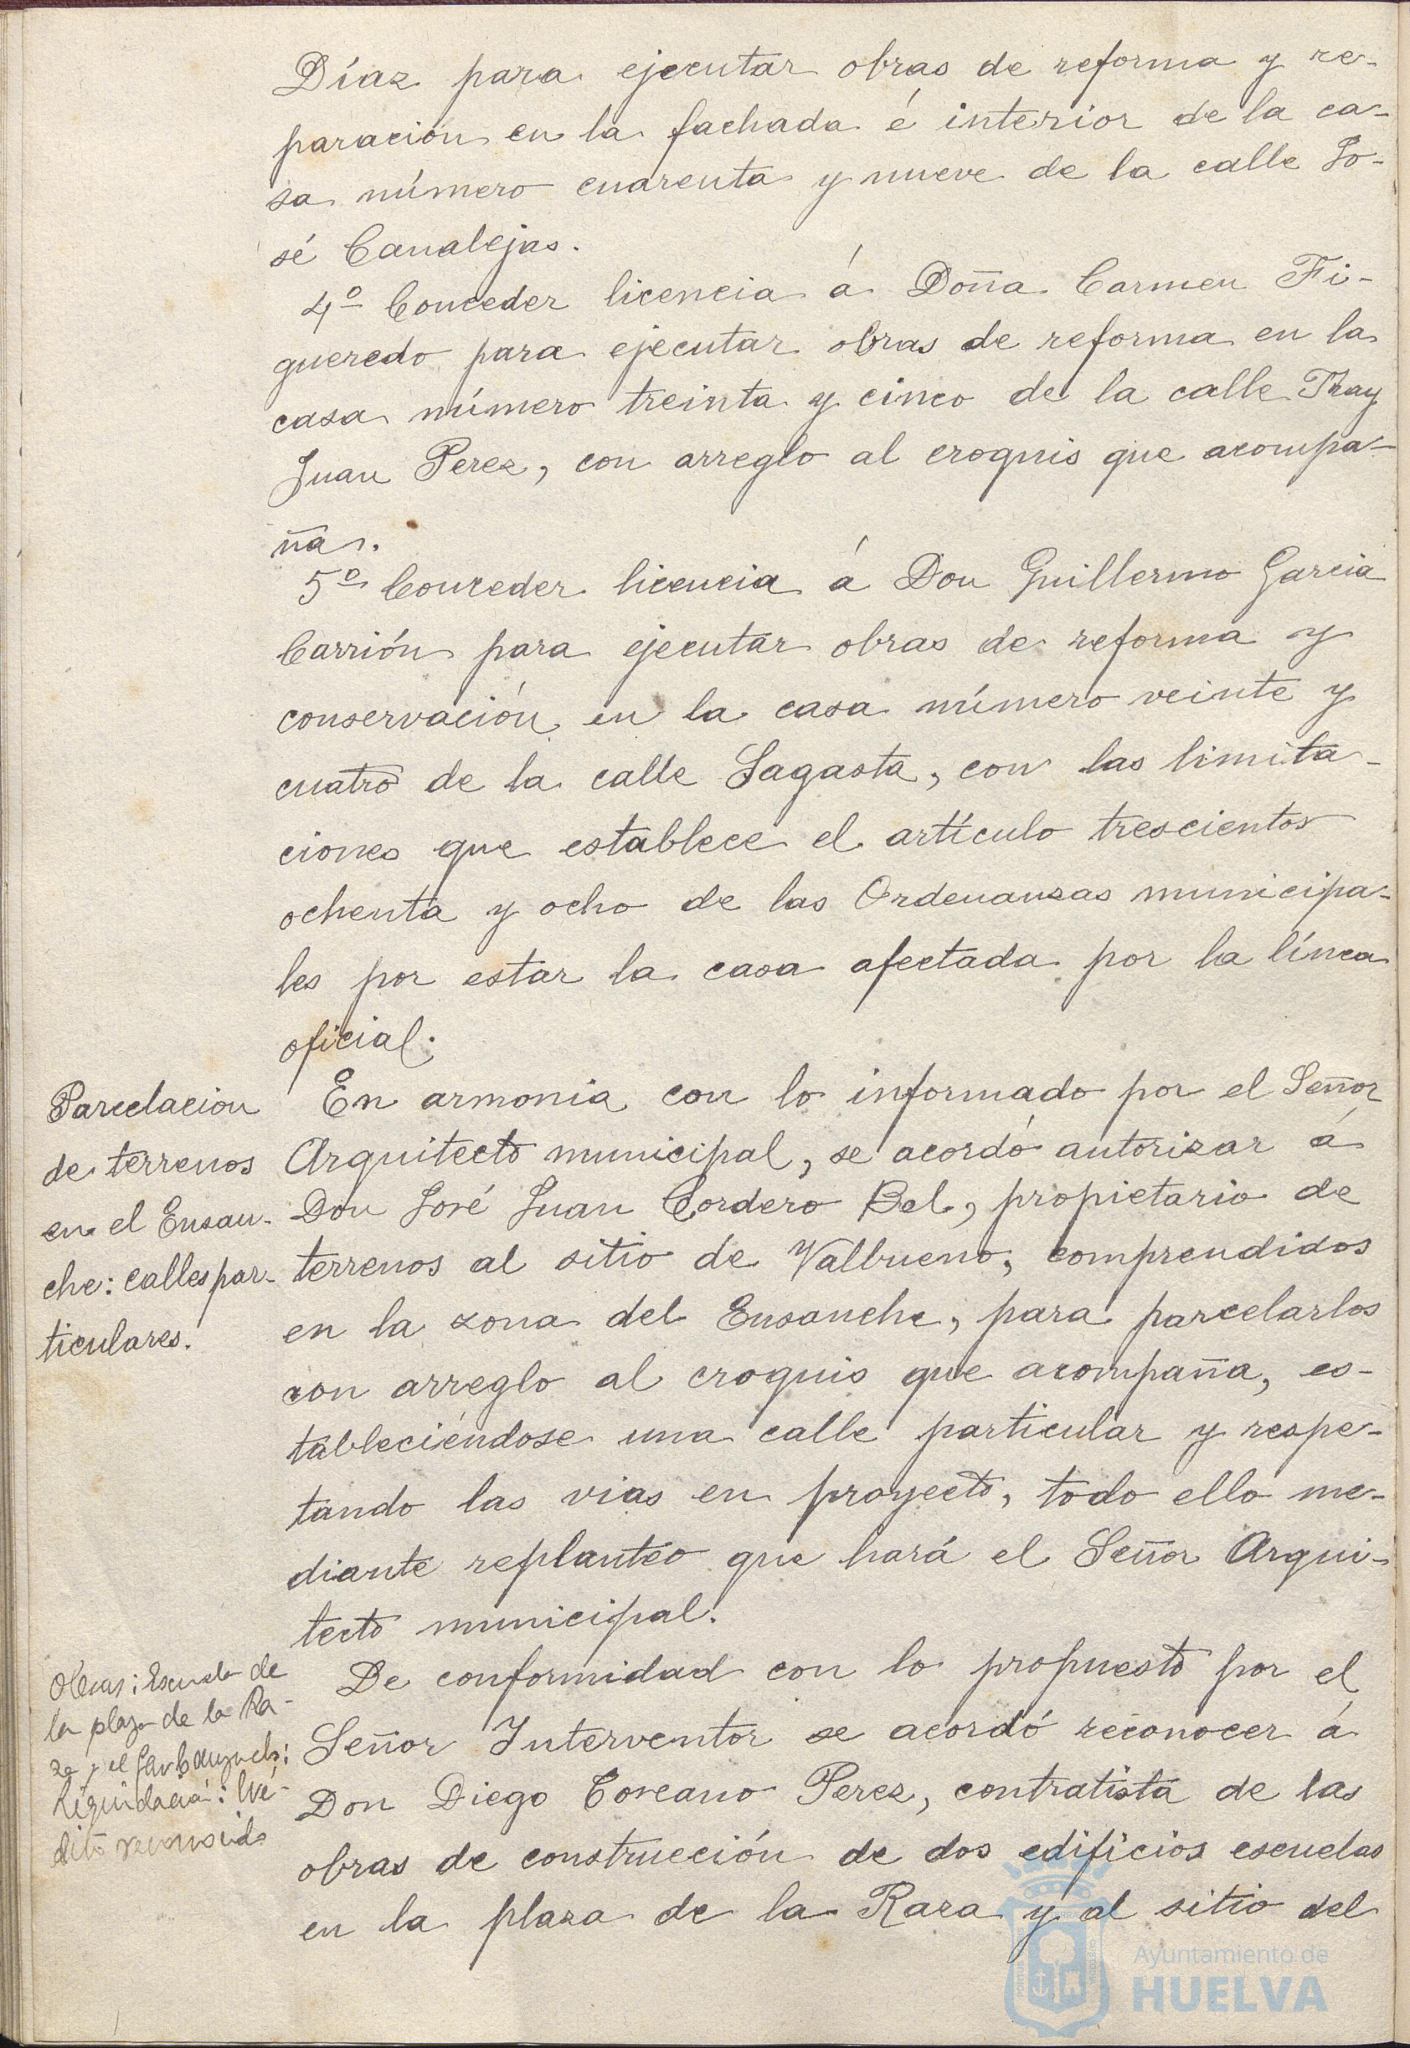 Díaz para ejecutar obras de reforma y re-
paración en la fachada é interior de la ca-
sa número cuarenta y nueve de la calle Jo-
sé Canalejas.
4º Conceder licencia á Doña Carmen Fi-
gueredo para ejecutar obras de reforma en la
casa número treinta y cinco de la calle Fray
Juan Perez, con arreglo al croquis que acompa-
ña.
5º Conceder licencia á Don Guillermo Garcia
Carrión para ejecutar obras de reforma y
conservación en la casa número veinte y
cuatro de la calle Sagasta, con las limita-
ciones que establece el artículo trescientos
ochenta y ocho de las Ordenanzas municipa-
les por estar la casa afectada por la línea
oficial.
Parcelacion
de terrenos
en el Ensan-
che: calles par-
ticulares.
En armonia con lo informado por el Señor
Arquitecto municipal, se acordó autorizar á
Don José Juan Cordero Bel, propietario de
terrenos al sitio de Valbueno, comprendidos
en la zona del Ensanche, para parcelarlos
con arreglo al croquis que acompaña, es-
tableciéndose una calle particular y respe-
tando las vias en proyecto, todo ello me-
diante replanteo que hará el Señor Arqui-
tecto municipal.
Obras: Escuela de
la plaza de la Ra-
za y el
Liquidación: Cré-
dito reconocido
De conformidad con lo propuesto por el
Señor Interventor se acordó reconocer á
Don Diego Toreano Perez, contratista de las
obras de construcción de dos edificios escuelas
en la plaza de la Raza y al sitio del
Ayuntamiento de
HUELVA